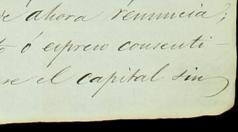 ahora renuncia;
ó expreso consenti-
re el capital sin